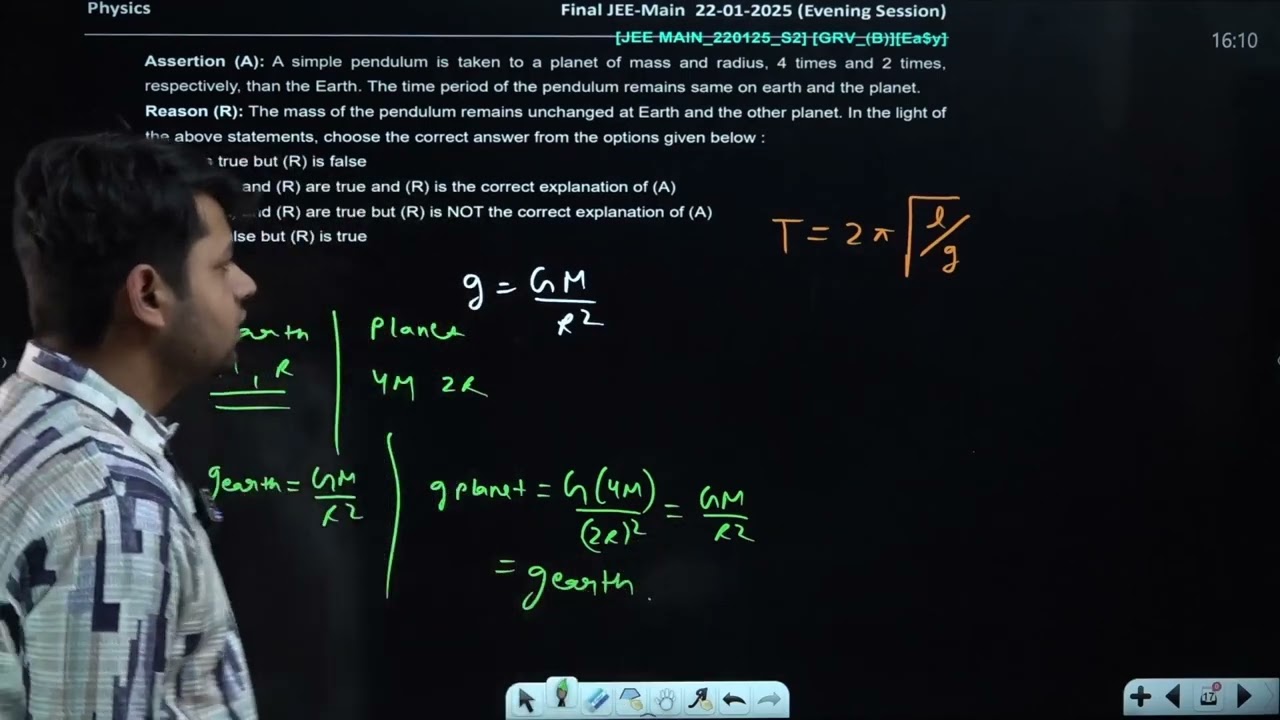 Physics
Final JEE-Main 22-01-2025 (Evening Session)
[JEE MAIN_220125_S2] [GRV_(B)][Ea$y]
16:10
Assertion (A): A simple pendulum is taken to a planet of mass and radius, 4 times and 2 times,
respectively, than the Earth. The time period of the pendulum remains same on earth and the planet.
Reason (R): The mass of the pendulum remains unchanged at Earth and the other planet. In the light of
the above statements, choose the correct answer from the options given below :
true but (R) is false
and (R) are true and (R) is the correct explanation of (A)
and (R) are true but (R) is NOT the correct explanation of (A)
but (R) is true
T = 2π√l/g
g = GM/R²
arth | Planet
, R | 4M 2R
gearth = GM/R² | gplanet = G(4M)/(2R)² = GM/R²
= gearth.
17